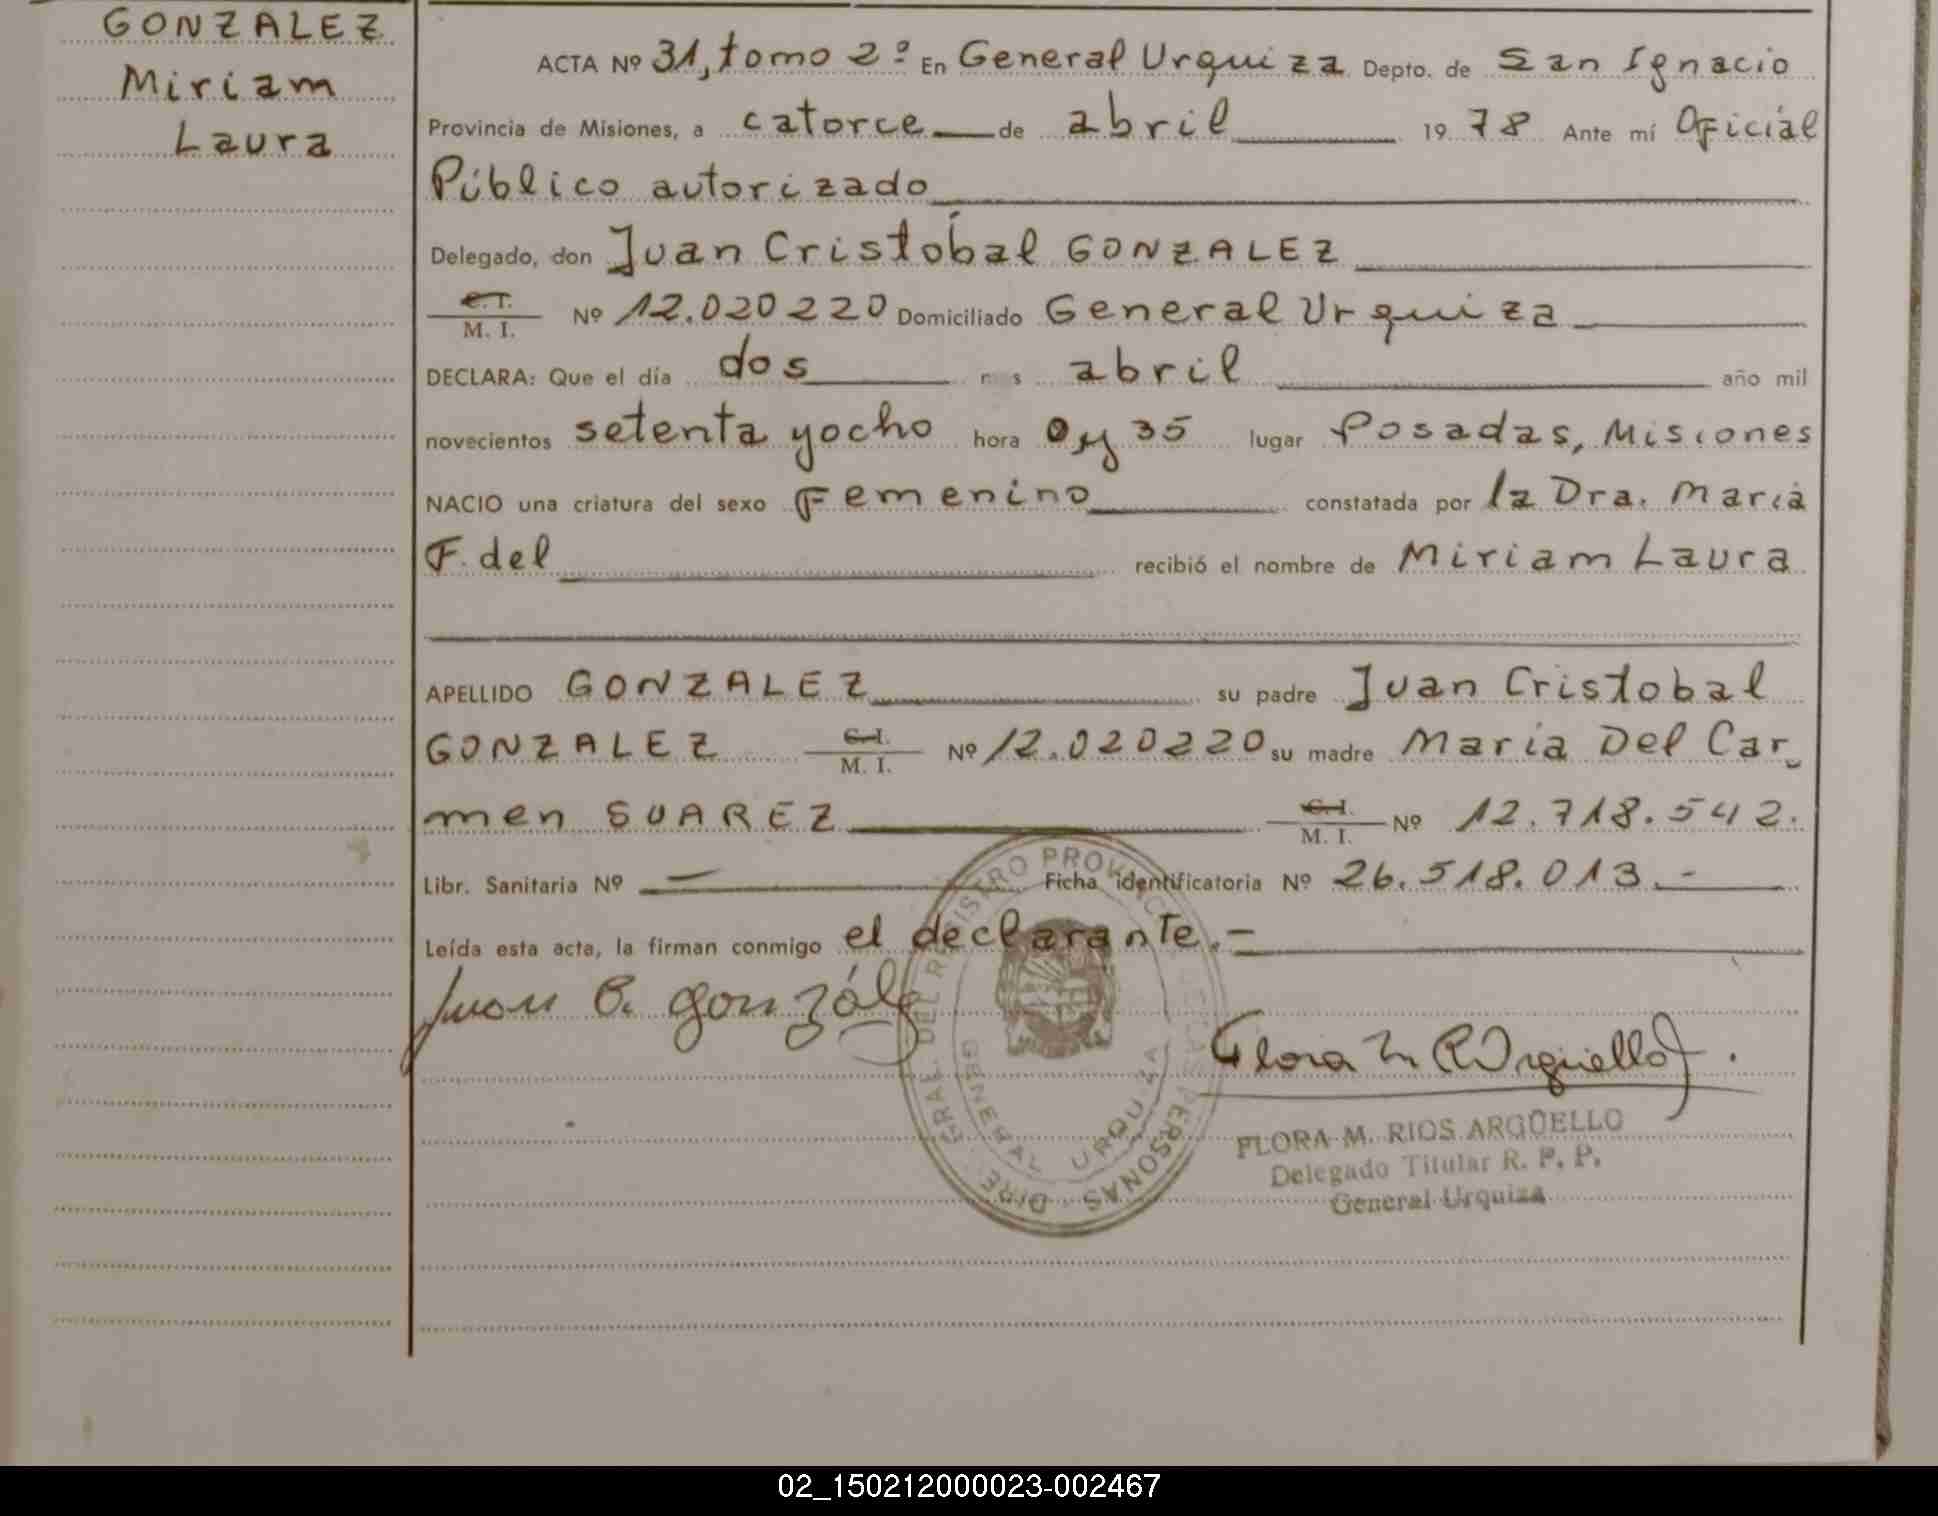 GONZALEZ
Miriam
Laura
ACTA Nº 31, tomo 2º En General Urquiza Depto. de San Ignacio
Provincia de Misiones, a catorce de abril 1978 Ante mí Oficial
Público autorizado
Delegado, don Juan Cristóbal GONZALEZ
C. I.
M. I. Nº 12.020220 Domiciliado General Urquiza
DECLARA: Que el día dos mes abril año mil
novecientos setenta yocho hora 0 y 35 lugar Posadas, Misiones
NACIO una criatura del sexo Femenino constatada por la Dra. María
F. del recibió el nombre de Miriam Laura
APELLIDO GONZALEZ su padre Juan Cristobal
GONZALEZ C. I. M. I. Nº 12.020220 su madre María Del Car-
men SUAREZ C. I. M. I. Nº 12.718.542.
Libr. Sanitaria Nº — Ficha identificatoria Nº 26.518.013.-
Leída esta acta, la firman conmigo el declarante.-
Juan C. González
Flora M R Argüello
DIRE. GRAL. DEL REGISTRO PROVINCIAL DE LAS PERSONAS
GENERAL URQUIZA
FLORA M. RIOS ARGÜELLO
Delegado Titular R. P. P.
General Urquiza
02_150212000023-002467